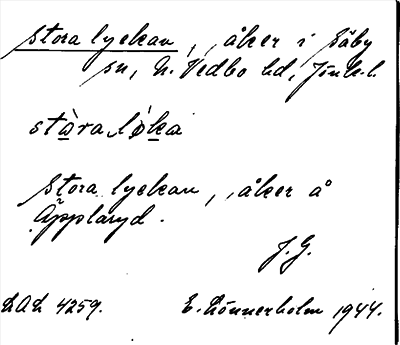 Stora lyckan, åker i Säby
sn, N. Vedbo hd, Jönk. l.
stòra lỏ́ka
Stora lyckan, åker å
Äpplaryd.
J. G.
LAL 4259. E. Lönnerholm 1944.